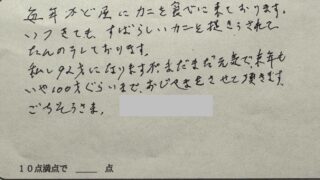 毎年かど屋にカニを食べに来ております。
いつきても、すばらしいカニを提きうされて
たんのうしております。
私し92才になりますが、まだまだ元気で、来年も
いや100才ぐらいまで、おじゃまをさせて頂きます。
ごちそうさま。
10点満点で ____ 点